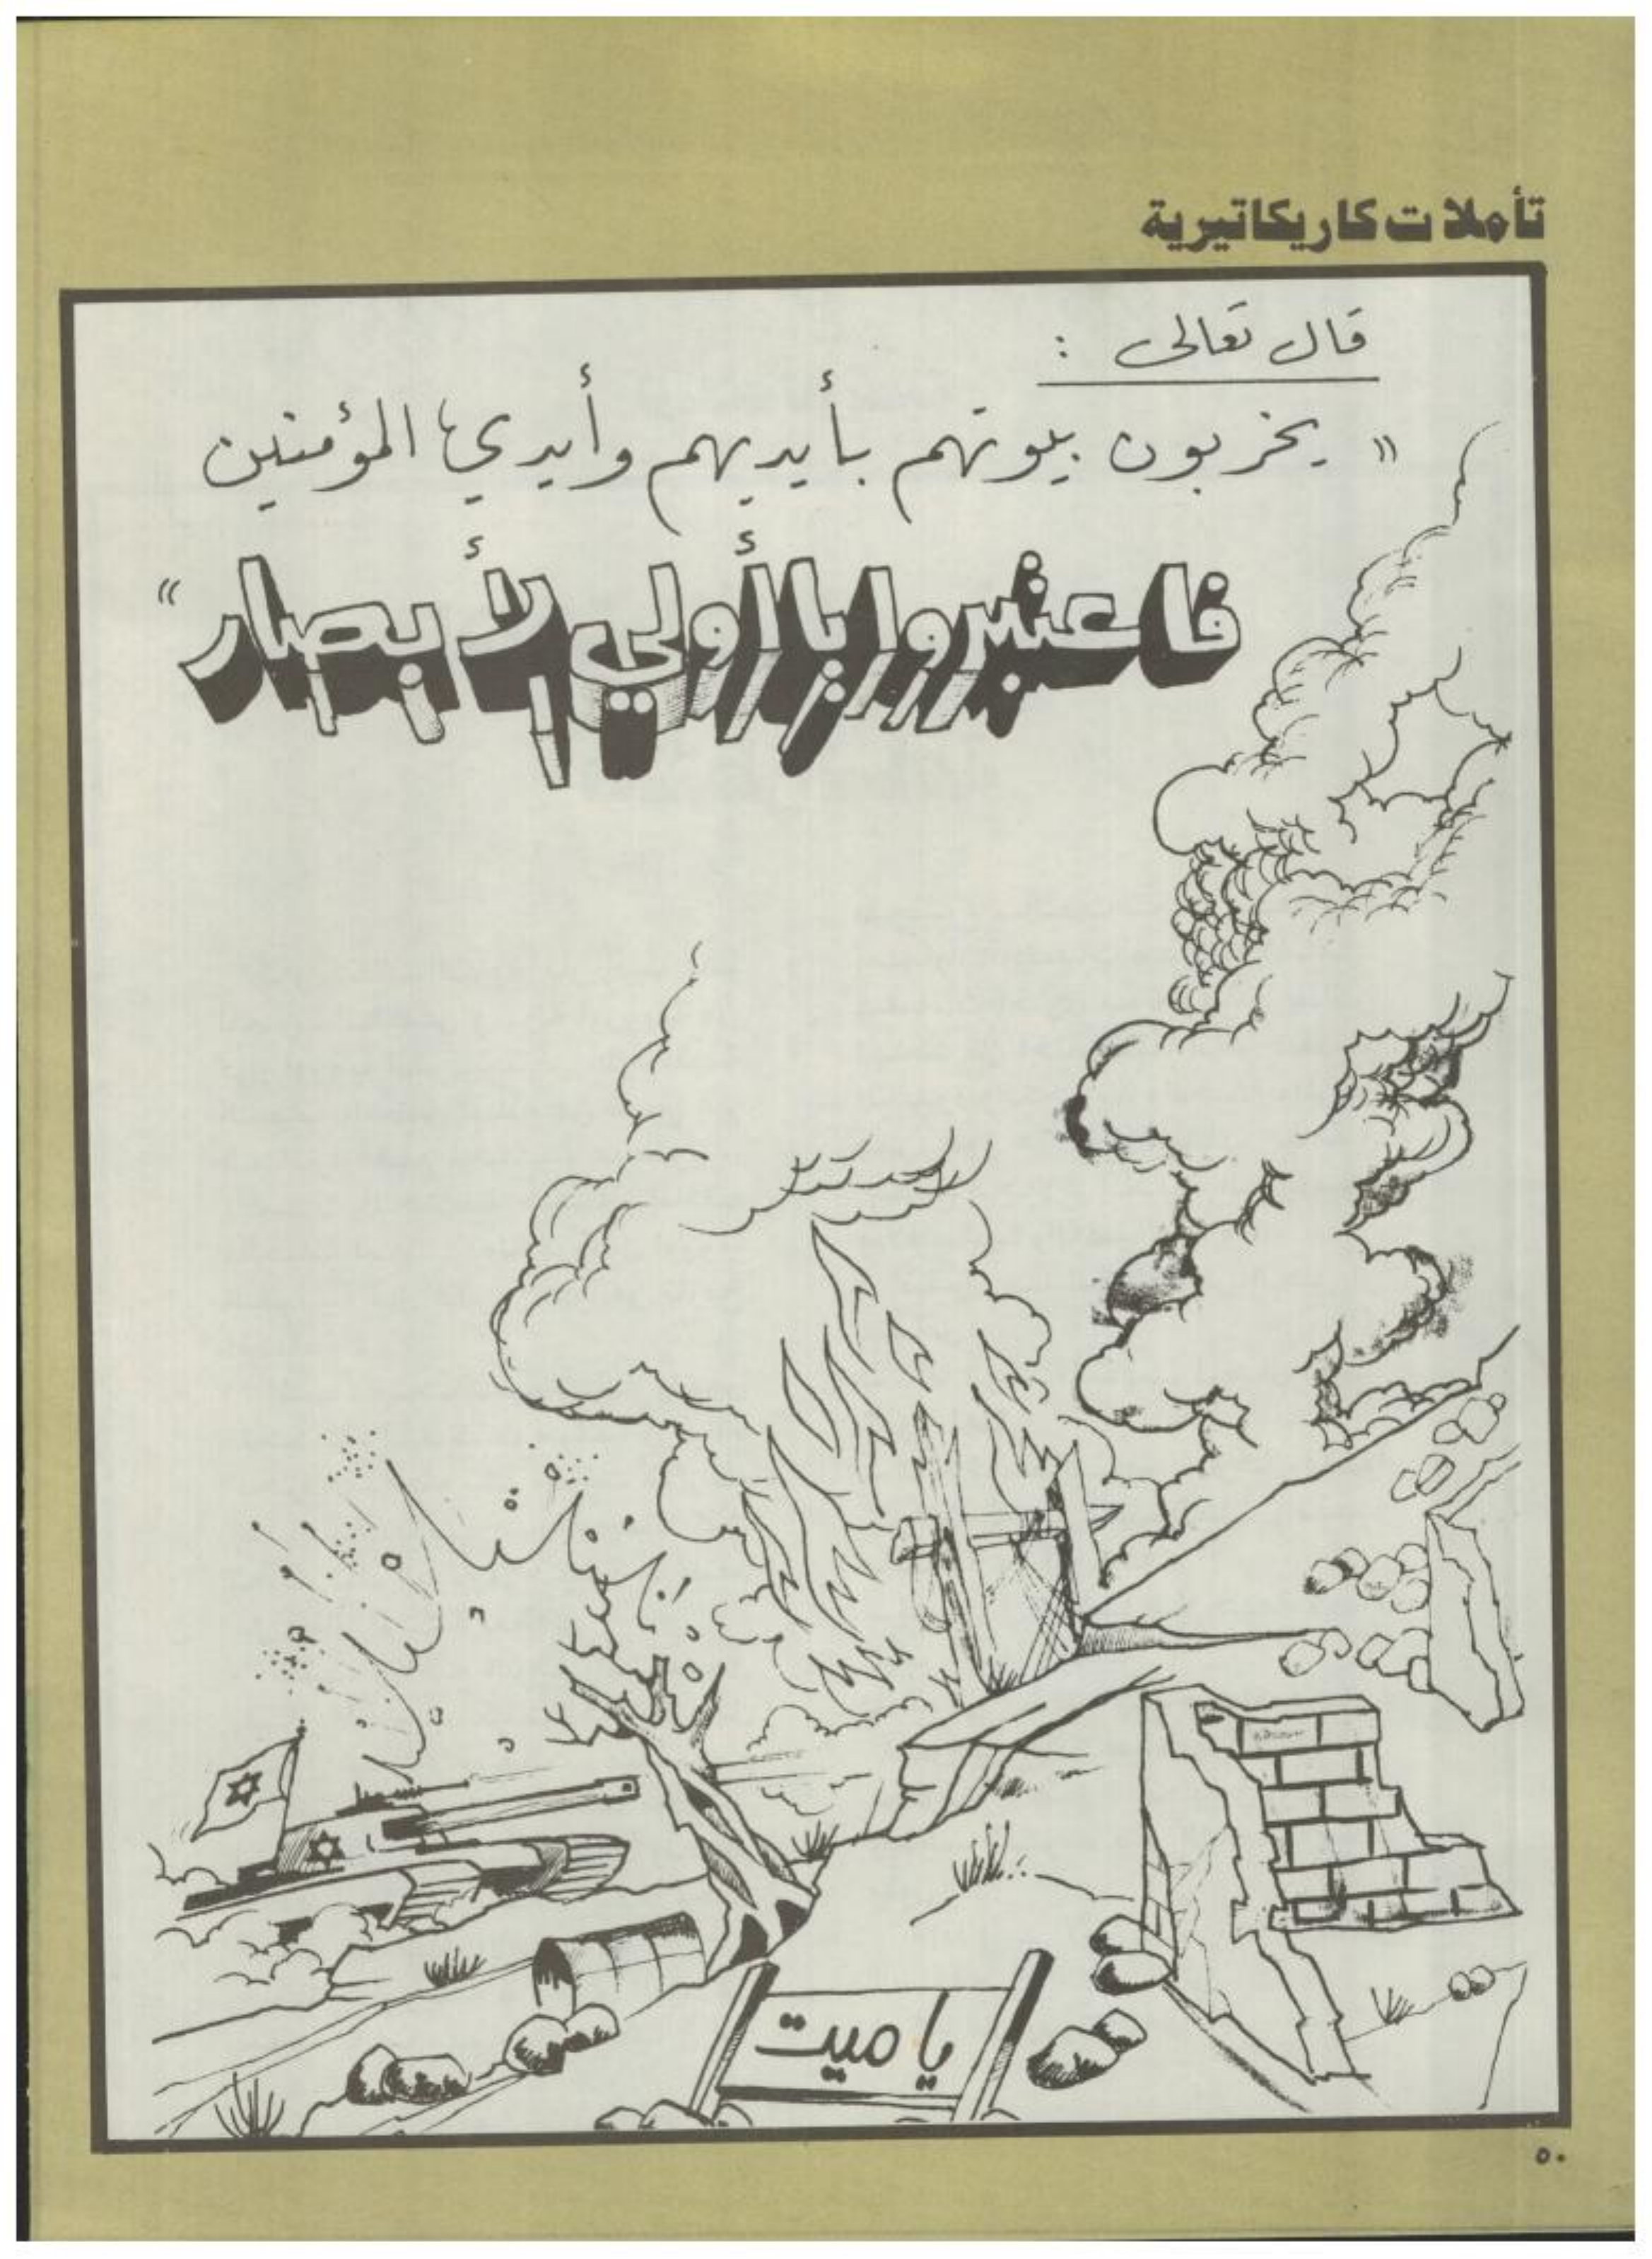 تأملات كاريكاتيرية
قال تعالى :
« يخربون بيوتهم بأيديهم وأيدي المؤمنين
فاعتبروا يا أولي الأبصار »
ياميت
٥٠